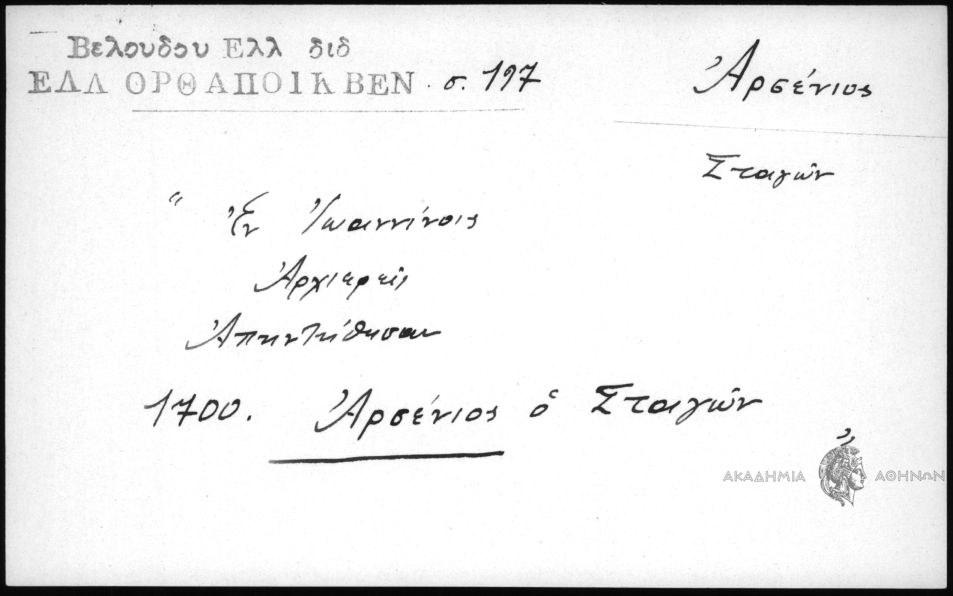 Βελουδου Ελλ διδ
ΕΛΛ ΟΡΘ ΑΠΟΙΚ ΒΕΝ . σ. 197
Ἀρσένιος
Σταγῶν
“ Ἐν Ἰωαννίνοις
Ἀρχιερεῖς
1700. Ἀρσένιος ὁ Σταγῶν
ΑΚΑΔΗΜΙΑ ΑΘΗΝΩΝ